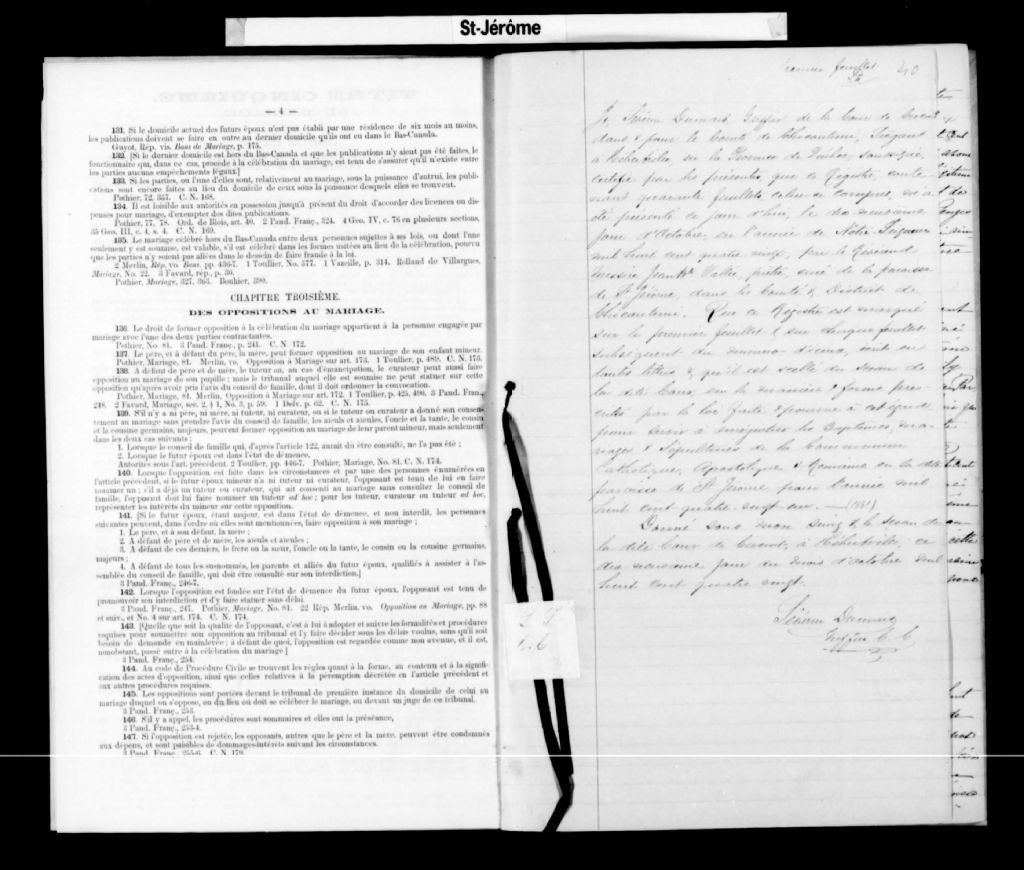 St-Jérôme
— 4 —
131. Si le domicile actuel des futurs époux n'est pas établi par une résidence de six mois au moins,
les publications doivent se faire en outre au dernier domicile qu'ils ont eu dans le Bas-Canada.
Guyot, Rép. vis. Bans de Mariage, p. 175.
132. [Si le dernier domicile est hors du Bas-Canada et que les publications n'y aient pas été faites, le
fonctionnaire qui, dans ce cas, procède à la célébration du mariage, est tenu de s'assurer qu'il n'existe entre
les parties aucuns empêchements légaux.]
133. Si les parties, ou l'une d'elles sont, relativement au mariage, sous la puissance d'autrui, les publi-
cations sont encore faites au lieu du domicile de ceux sous la puissance desquels elles se trouvent.
Pothier, 72, 357. C. N. 168.
134. Il est loisible aux autorités en possession jusqu'à présent du droit d'accorder des licences ou dis-
penses pour mariage, d'exempter des dites publications.
Pothier, 77, 78. Ord. de Blois, art. 40. 2 Pand. Franç., 324. 4 Geo. IV, c. 76 en plusieurs sections,
35 Geo. III, c. 4, s. 4. C. N. 169.
135. Le mariage célébré hors du Bas-Canada entre deux personnes sujettes à ses lois, ou dont l'une
seulement y est soumise, est valable, s'il est célébré dans les formes usitées au lieu de la célébration, pourvu
que les parties n'y soient pas allées dans le dessein de faire fraude à la loi.
2 Merlin, Rép. vo. Bans. pp. 436-7. 1 Toullier, No. 577. 1 Vazeille, p. 314. Rolland de Villargues,
Mariage, No. 22. 3 Favard, rép., p. 30.
Pothier, Mariage, 327, 363. Bouhier, 390.
CHAPITRE TROISIÈME.
DES OPPOSITIONS AU MARIAGE.
136. Le droit de former opposition à la célébration du mariage appartient à la personne engagée par
mariage avec l'une des deux parties contractantes.
Pothier, No. 81. 3 Pand. Franç., p. 241. C. N. 172.
137. Le père, et à défaut du père, la mère, peut former opposition au mariage de son enfant mineur.
Pothier, Mariage, 81. Merlin, vo. Opposition à Mariage sur art. 173. 1 Toullier, p. 489. C. N. 173.
138. A défaut de père et de mère, le tuteur ou, au cas d'émancipation, le curateur peut aussi faire
opposition au mariage de son pupille; mais le tribunal auquel elle est soumise ne peut statuer sur cette
opposition qu'après avoir pris l'avis du conseil de famille, dont il doit ordonner la convocation.
Pothier, Mariage, 81. Merlin, Opposition à Mariage sur art. 172. 1 Toullier, p. 425, 490. 3 Pand. Fran.,
248. 2 Favard, Mariage, sec. 2, § 1, No. 3, p. 59. 1 Delv. p. 62. C. N. 175.
139. S'il n'y a ni père, ni mère, ni tuteur, ni curateur, ou si le tuteur ou curateur a donné son consen-
tement au mariage sans prendre l'avis du conseil de famille, les aïeuls et aïeules, l'oncle et la tante, le cousin
et la cousine germains, majeurs, peuvent former opposition au mariage de leur parent mineur, mais seulement
dans les deux cas suivants:
1. Lorsque le conseil de famille qui, d'après l'article 122, aurait dû être consulté, ne l'a pas été;
2. Lorsque le futur époux est dans l'état de démence.
Autorités sous l'art. précédent. 2 Toullier, pp. 446-7. Pothier, Mariage, No. 81. C. N. 174.
140. Lorsque l'opposition est faite dans les circonstances et par une des personnes énumérées en
l'article précédent, si le futur époux mineur n'a ni tuteur ni curateur, l'opposant est tenu de lui en faire
nommer un; s'il a déjà un tuteur ou curateur, qui ait consenti au mariage sans consulter le conseil de
famille, l'opposant doit lui faire nommer un tuteur ad hoc; pour les tuteur, curateur ou tuteur ad hoc,
représenter les intérêts du mineur sur cette opposition.
141. [Si le futur époux, étant majeur, est dans l'état de démence, et non interdit, les personnes
suivantes peuvent, dans l'ordre où elles sont mentionnées, faire opposition à son mariage;
1. Le père, et à son défaut, la mère;
2. A défaut de père et de mère, les aïeuls et aïeules;
3. A défaut de ces derniers, le frère ou la sœur, l'oncle ou la tante, le cousin ou la cousine germains,
majeurs;
4. A défaut de tous les susnommés, les parents et alliés du futur époux, qualifiés à assister à l'as-
semblée du conseil de famille, qui doit être consulté sur son interdiction.]
3 Pand. Franç., 246-7.
142. Lorsque l'opposition est fondée sur l'état de démence du futur époux, l'opposant est tenu de
promouvoir son interdiction et d'y faire statuer sans délai.
3 Pand. Franç., 247. Pothier, Mariage, No. 81. 22 Rép. Merlin, vo. Opposition au Mariage, pp. 88
et suiv., et No. 4 sur art. 174. C. N. 174.
143. [Quelle que soit la qualité de l'opposant, c'est à lui à adopter et suivre les formalités et procédures
requises pour soumettre son opposition au tribunal et l'y faire décider sous les délais voulus, sans qu'il soit
besoin de demande en mainlevée; à défaut de quoi, l'opposition est regardée comme non avenue, et il est,
nonobstant, passé outre à la célébration du mariage]
3 Pand. Franç., 254.
144. Au code de Procédure Civile se trouvent les règles quant à la forme, au contenu et à la signifi-
cation des actes d'opposition, ainsi que celles relatives à la péremption décrétée en l'article précédent et
aux autres procédures requises.
145. Les oppositions sont portées devant le tribunal de première instance du domicile de celui au
mariage duquel on s'oppose, ou du lieu où doit se célébrer le mariage, ou devant un juge de ce tribunal.
3 Pand. Franç., 253.
146. S'il y a appel, les procédures sont sommaires et elles ont la préséance,
3 Pand. Franç., 253-4.
147. Si l'opposition est rejetée, les opposants, autres que le père et la mère, peuvent être condamnés
aux dépens, et sont passibles de dommages-intérêts suivant les circonstances.
3 Pand. Franç., 255-6. C. N. 179.
Premier feuillet 40
Je, Séverin Dumais Greffier de la Cour de Circuit
dans & pour le Comté de Chicoutimi, Siégeant
à Hébertville, en la Province de Québec, soussigné,
certifie par les présentes que ce Régistre, conte-
nant quarante feuillets, celui-ci compris, m'a
été présenté ce jour d'hui, le dix-neuvième
jour d'Octobre, en l'année de Notre Seigneur
mil huit cent quatre vingt, par le Révérend
Messire Vallée, prêtre, curé de la paroisse
de St Jérôme, dans les Comté & District de
Chicoutimi. Que ce Régistre est marqué
sur le premier feuillet & sur chaque feuillet
subséquent du numéro d'icelui, écrit en
toutes lettres & qu'il est scellé du sceau de
la dite Cour, en la manière & forme pres-
crite par la loi faite & pourvue à cet égard
pour servir à enrégistrer les Baptêmes, ma-
riages & Sépultures de la Communion
Catholique, Apostolique & Romaine en la dite
paroisse de St Jérôme pour l'année mil
huit cent quatre-vingt un. — (1881)
Donné sous mon Seing & le sceau de
la dite Cour de Circuit, à Hébertville, ce
dix-neuvième jour du mois d'octobre mil
huit cent quatre vingt.
Séverin Dumais
Greffier C. C.
L. S.
C. C.